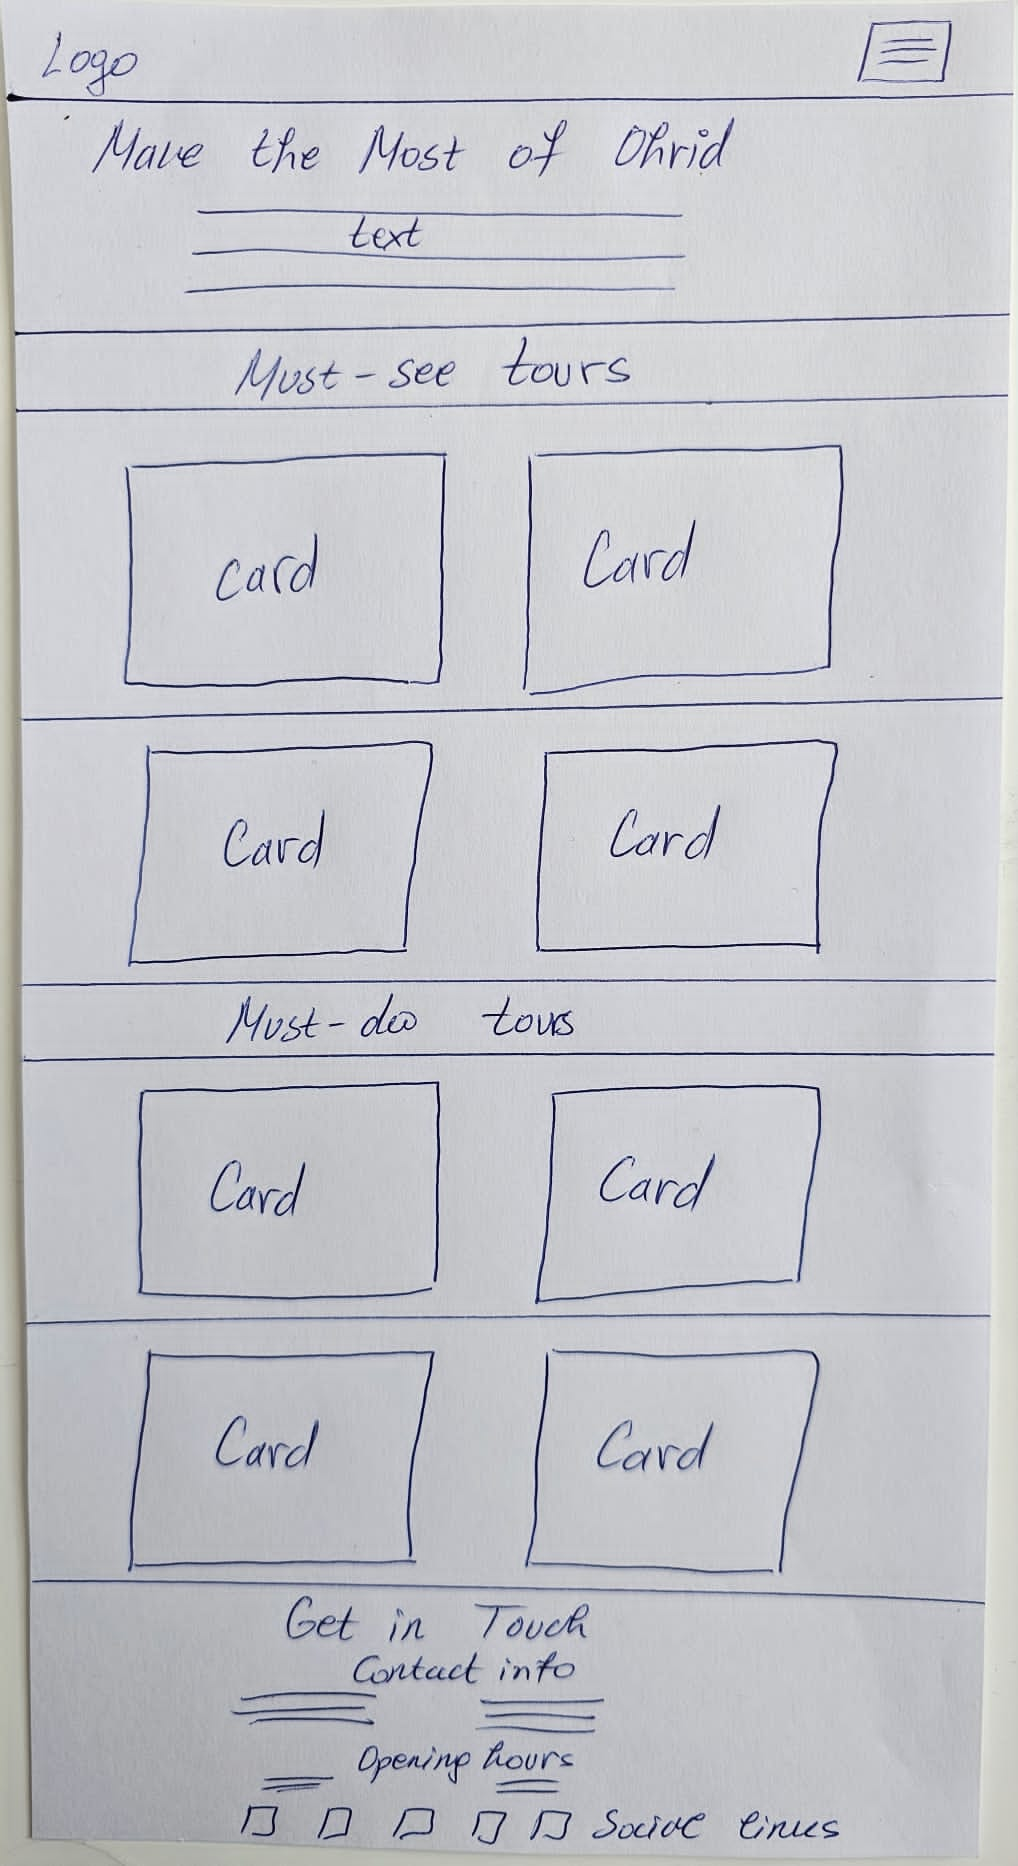 Logo
Make the Most of Ohrid
text
Must-see tours
card Card
Card Card
Must-do tours
Card Card
Card Card
Get in Touch
Contact info
Opening hours
Social links